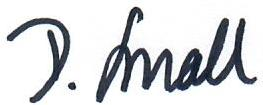 D. Small